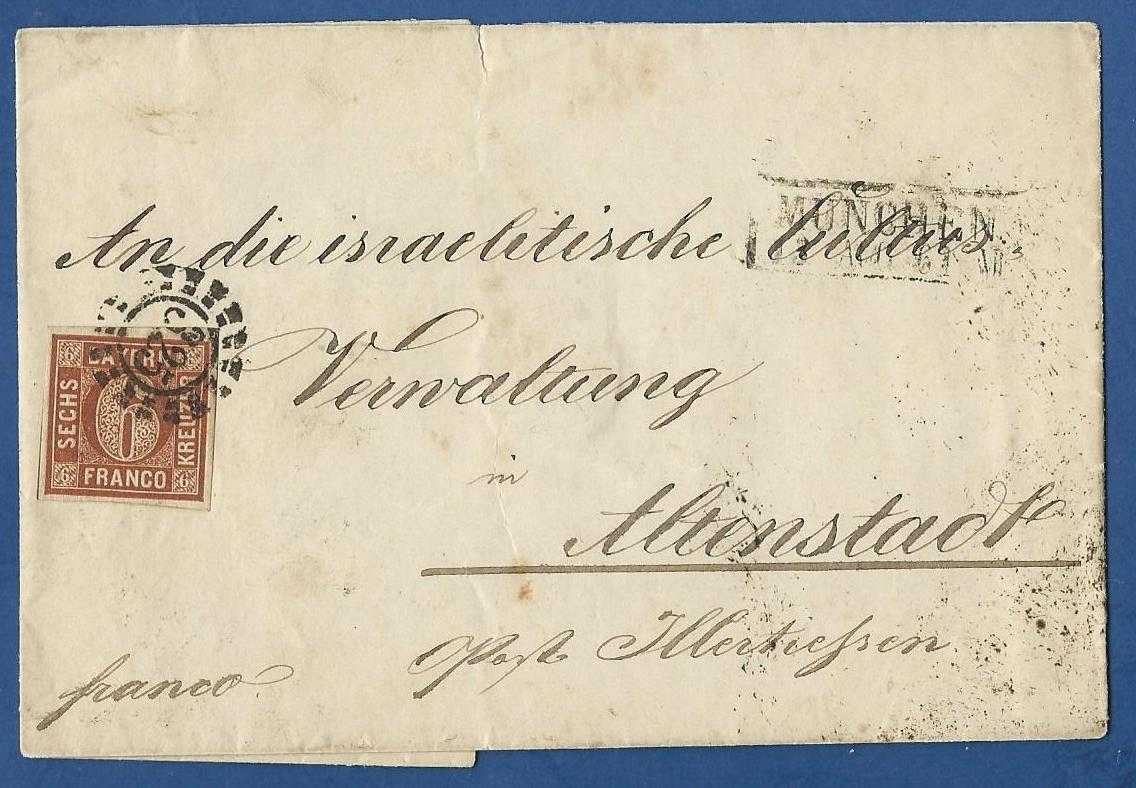 An die israelitische Cultus-
MÜNCHEN
Verwaltung
in
Altenstadt
Post Illertießen
franco
6 BAYERN
SECHS
6
KREUZER
6 FRANCO 6